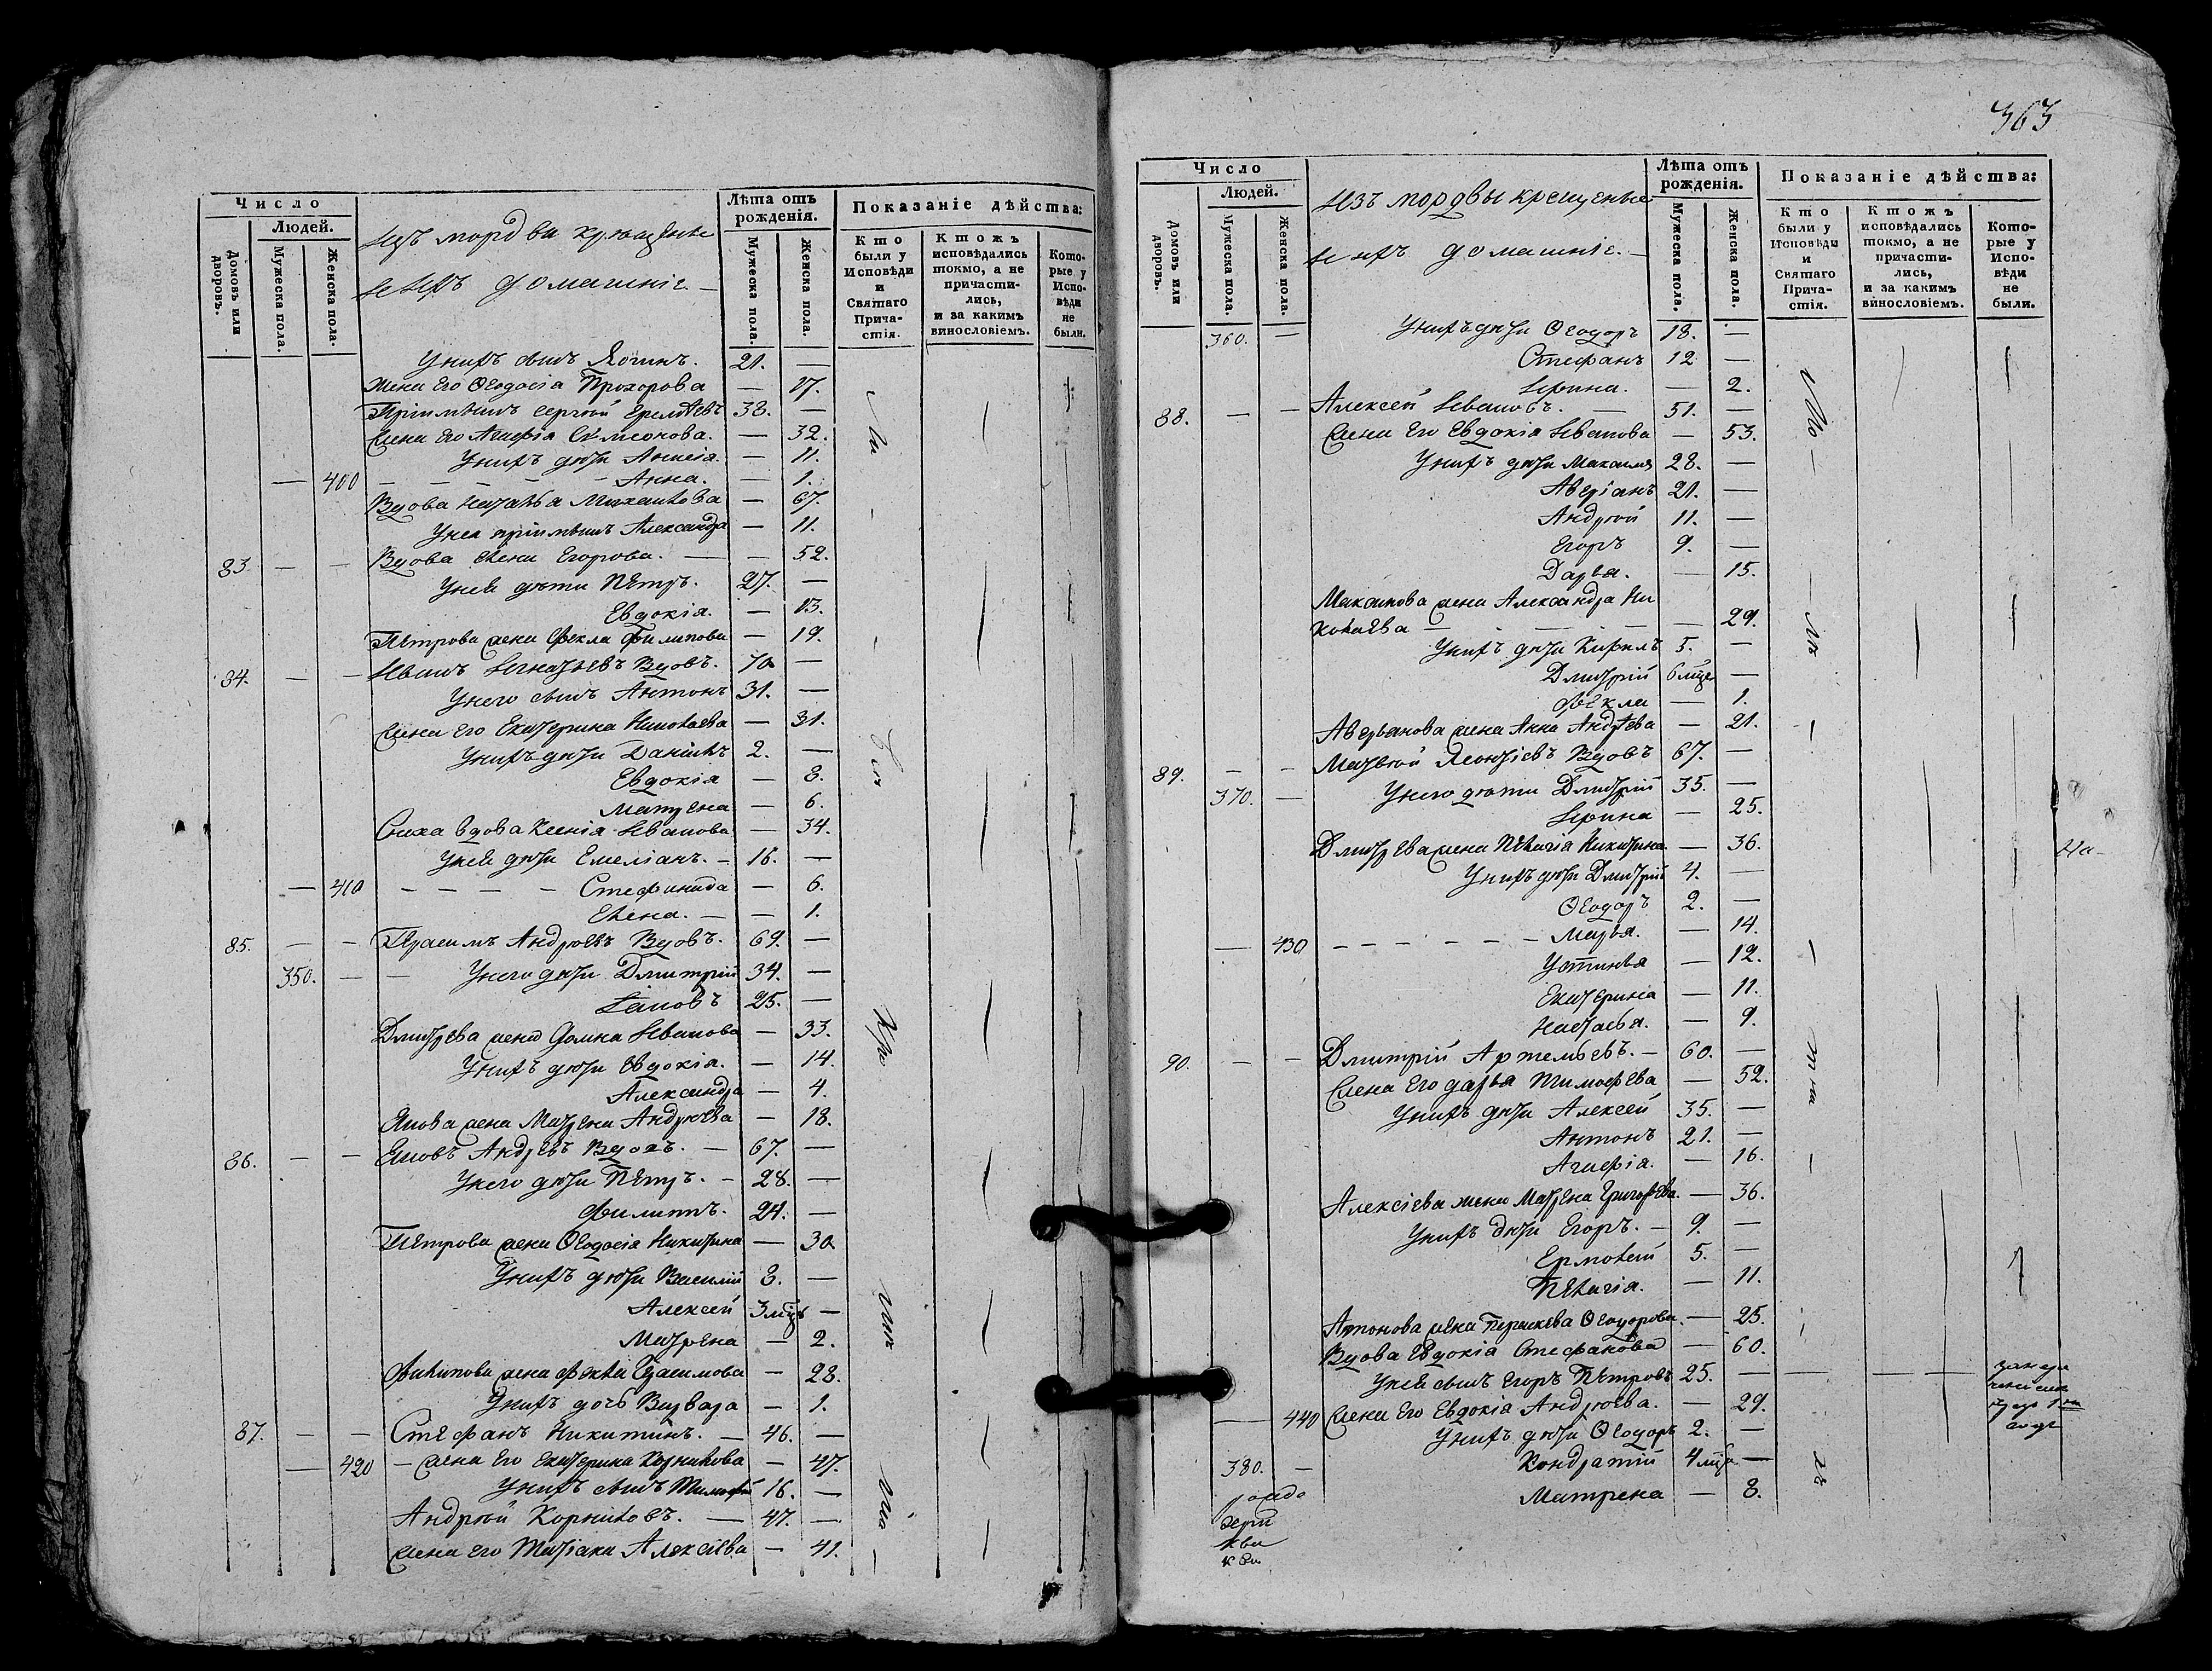 Число
Людей.
Домовъ или дворовъ.
Мужеска пола.
Женска пола.
изъ мордвы крещеные
и ихъ домашніе. —
Лѣта отъ рожденія.
Мужеска пола.
Женска пола.
Показаніе дѣйства:
Кто были у Исповѣди и Святаго Прича-стія.
Ктожъ исповѣдались токмо, а не причасти-лись, и за какимъ винословіемъ.
Кото-рые у Испо-вѣди не были.
Унихъ сынъ Логинъ. 21. —
Жена Его Ѳеодосія Прохорова — 17.
Пріимышъ Сергѣй Ермолаевъ 38. —
Жена Его Агафія Симеонова. — 32.
Унихъ дѣти Анисія. — 11.
— 400 — — — — — Анна. — 1.
Вдова Наталья Михайлова — 67.
Унея пріимышъ Александра — 11.
83. — — Вдова Елена Егорова. — — 52.
Унея дѣти Петръ. 27. —
Евдокія. — 13.
Петрова жена Фекла Филипова — 19.
84. — — Иванъ Игнатьевъ Вдовъ. 70 —
Унего сынъ Антонъ 31. —
Жена Его Екатерина Николаева — 31.
Унихъ дѣти Даніилъ 2. —
Евдокія — 8.
Матрена — 6.
Сноха вдова Ксенія Иванова — 34.
Унея дѣти Емеліанъ. — 16. —
— 410 — — — — Стефанида — 6.
Елена. — — 1.
85. — — Герасимъ Андреевъ Вдовъ. 69. —
350. — — Унего дѣти Дмитрій 34. —
Іаковъ 25. —
Дмитрева жена Домна Иванова — 33.
Унихъ дѣти Евдокія. — 14.
Александра — 4.
Якова жена Матрена Андреева — 18.
86. — — Яковъ Андреевъ Вдовъ. — 67. —
Унего дѣти Петръ. — 28. —
Филиппъ. 24. —
Петрова жена Ѳеодосія Никитина — 30
Унихъ дѣти Василій 8. —
Алексей 3 мцъ —
Матрена — 2.
Филипова жена Фекла Герасимова — 28.
Унихъ дочь Варвара — 1.
87. — — Стефанъ Никитинъ. — 46. —
— 420 — Жена Его Екатерина Корнилова — 47.
Унихъ сынъ Тимофей 16. —
Андрей Корниловъ. — 47. —
Жена Его Татіана Алексіева — 41. —
363
Число
Людей.
Домовъ или дворовъ.
Мужеска пола.
Женска пола.
Изъ мордвы крещеные
и ихъ домашніе. —
Лѣта отъ рожденія.
Мужеска пола.
Женска пола.
Показаніе дѣйства:
Кто были у Исповѣди и Святаго Прича-стія.
Ктожъ исповѣдались токмо, а не причасти-лись, и за какимъ винословіемъ.
Кото-рые у Испо-вѣди не были.
360. — Унихъ дѣти Ѳеодоръ 18. —
Стефанъ 12 —
Ирина. — 2.
88. — — Алексей Ивановъ. — 51. —
Жена Его Евдокія Иванова — 53.
Унихъ дѣти Максимъ 28. —
Аверіанъ 21. —
Андрей 11. —
Егоръ 9. —
Дарья. — 15.
Максимова жена Александра Ни
колаева — — — — — 29.
Унихъ дѣти Кирилъ 5. —
Дмитрій 6 мцев —
Фекла — 1.
Аверьянова жена Анна Андреева — 21.
89. — — Матвей Леонтіевъ Вдовъ 67. —
370. — Унего дѣти Дмитрій 35. —
Ирина — 25.
Дмитрева жена Пелагія Никитина — 36.
Унихъ дѣти Дмитрій 4. —
Ѳеодоръ 2. —
— 430 — — — — — — Марья. — 14.
Устинья — 12.
Екатерина — 11.
Настасья. — 9.
90. — — Дмитрій Артемьевъ. — 60. —
Жена Его Дарья Тимофева — 52.
Унихъ дѣти Алексей 35. —
Антонъ 21. —
Агафія. — 16.
Алексіева жена Матрена Григорьева. — 36.
Унихъ дѣти Егоръ. — 9. —
Ермолай 5. —
Пелагія. — 11.
Антонова жена Пераскева Ѳеодорова. — 25.
Вдова Евдокія Стефанова — 60.
Унея сынъ Егоръ Петровъ 25. — — — —
— 440 Жена Его Евдокія Андреева. — 29.
Унихъ дѣти Ѳеодоръ 2. —
380. — Кондратій 4 мцъ —
Матрена — 8.